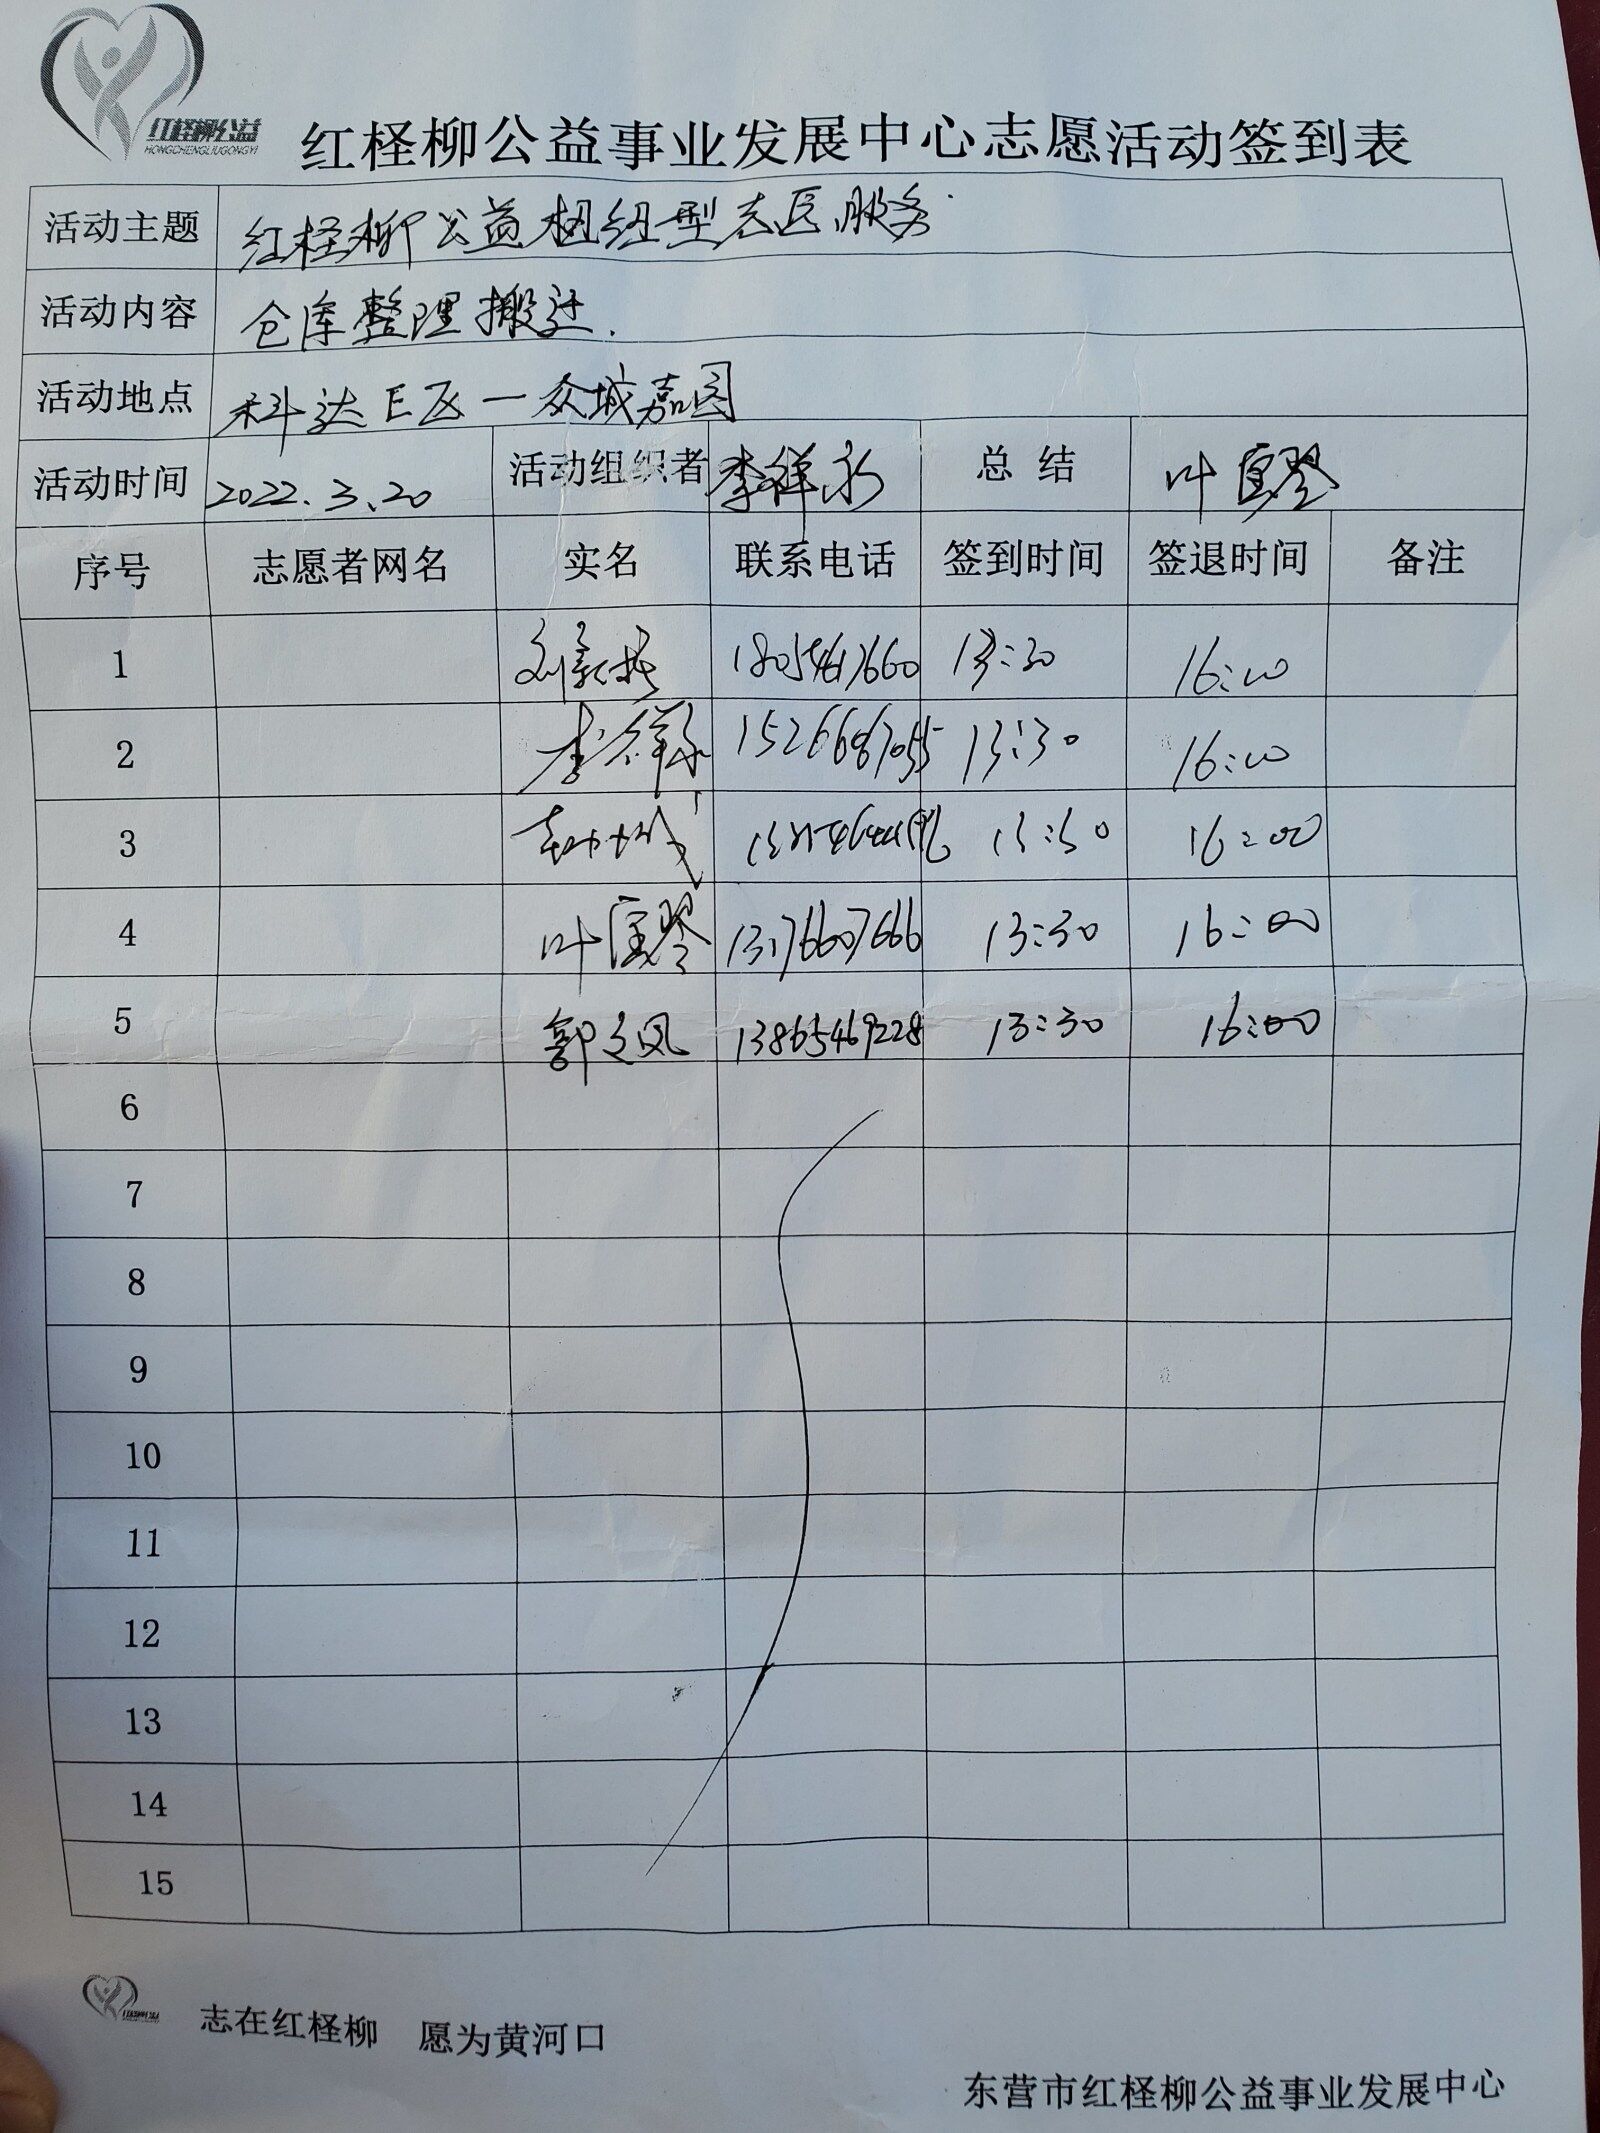 红柽柳公益
HONGCHENGLIUGONGYI
红柽柳公益事业发展中心志愿活动签到表
活动主题 红柽柳公益枢纽型志愿服务
活动内容 仓库整理搬迁.
活动地点 科达E区一众城嘉园
活动时间 2022.3.20 活动组织者 李祥永 总结 叶宝琴
序号 志愿者网名 实名 联系电话 签到时间 签退时间 备注
1 13:30 16:00
2 李祥永 13:30 16:00
3 13:30 16:00
4 叶宝琴 13176607666 13:30 16:00
5 郭文凤 13865469228 13:30 16:00
6
7
8
9
10
11
12
13
14
15
志在红柽柳 愿为黄河口
东营市红柽柳公益事业发展中心